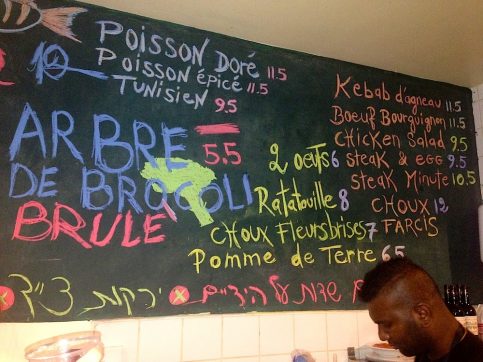 POISSON DORÉ 11.5
POISSON ÉPICÉ 11.5
TUNISIEN 9.5
ARBRE
DE BROCOLI 5.5
BRULE
Kebab d'agneau 11.5
Boeuf Bourguignon 11.5
CHICKEN SALAD 9.5
STEAK & EGG 9.5
STEAK Minute 10.5
CHOUX 12
FARCIS
2 oeufs 6
Ratatouille 8
CHOUX FleursBrises 7
Pomme de Terre 6.5
שדות על הידיים
ירקות